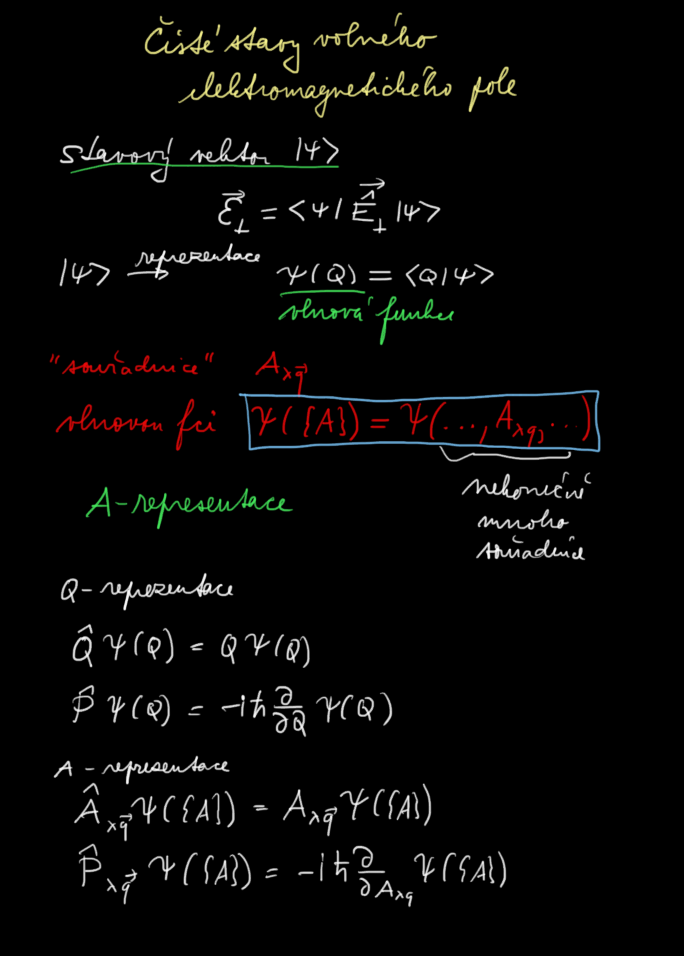 Čisté stavy volného
elektromagnetického pole
stavový vektor |ψ>
ℰ⃗⊥ = <ψ| Ê⃗⊥ |ψ>
|ψ> reprezentace → ψ(Q) = <Q|ψ>
vlnová funkce
"souřadnice" A_λq⃗
vlnovou fci Ψ({A}) = Ψ(..., A_λq, ...)
A-representace
nekonečně
mnoho
souřadnic
Q-reprezentace
Q̂ ψ(Q) = Q ψ(Q)
P̂ ψ(Q) = -iħ ∂/∂Q ψ(Q)
A-representace
Â_λq⃗ Ψ({A}) = A_λq⃗ Ψ({A})
P̂_λq⃗ Ψ({A}) = -iħ ∂/∂A_λq Ψ({A})